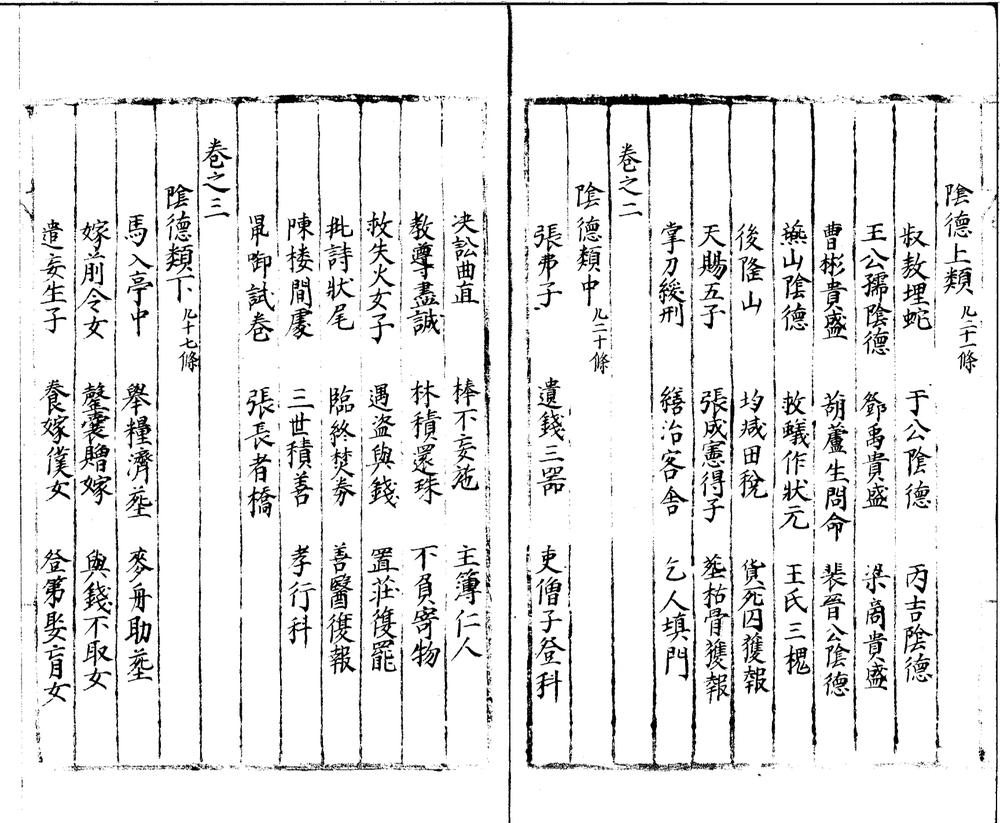 陰德上類 凢二十一條
叔敖埋蛇 于公陰德 丙吉陰德
王公孺陰德 鄧禹貴盛 梁商貴盛
曹彬貴盛 葫蘆生問命 裴晉公陰德
燕山陰德 救蟻作狀元 王氏三槐
後隆山 均減田稅 貸死囚獲報
天賜五子 張成憲得子 葬枯骨獲報
掌刀緩刑 繕治客舎 乞人填門
卷之二
陰德類中 凢二十條
張弗子 遺錢三器 吏僧子登科
决訟曲直 棒不妄施 主簿仁人
教導盡誠 林積還珠 不負寄物
救失火女子 遇盗與錢 置莊復罷
批詩狀尾 臨終焚券 善醫復報
陳楼間處 三世積善 孝行科
鼠啣試卷 張長者橋
卷之三
陰德類下 凢十七條
馬入亭中 舉糧濟葬 麥舟助葬
嫁前令女 罄囊贈嫁 與錢不取女
遣妾生子 養嫁僕女 登第娶盲女